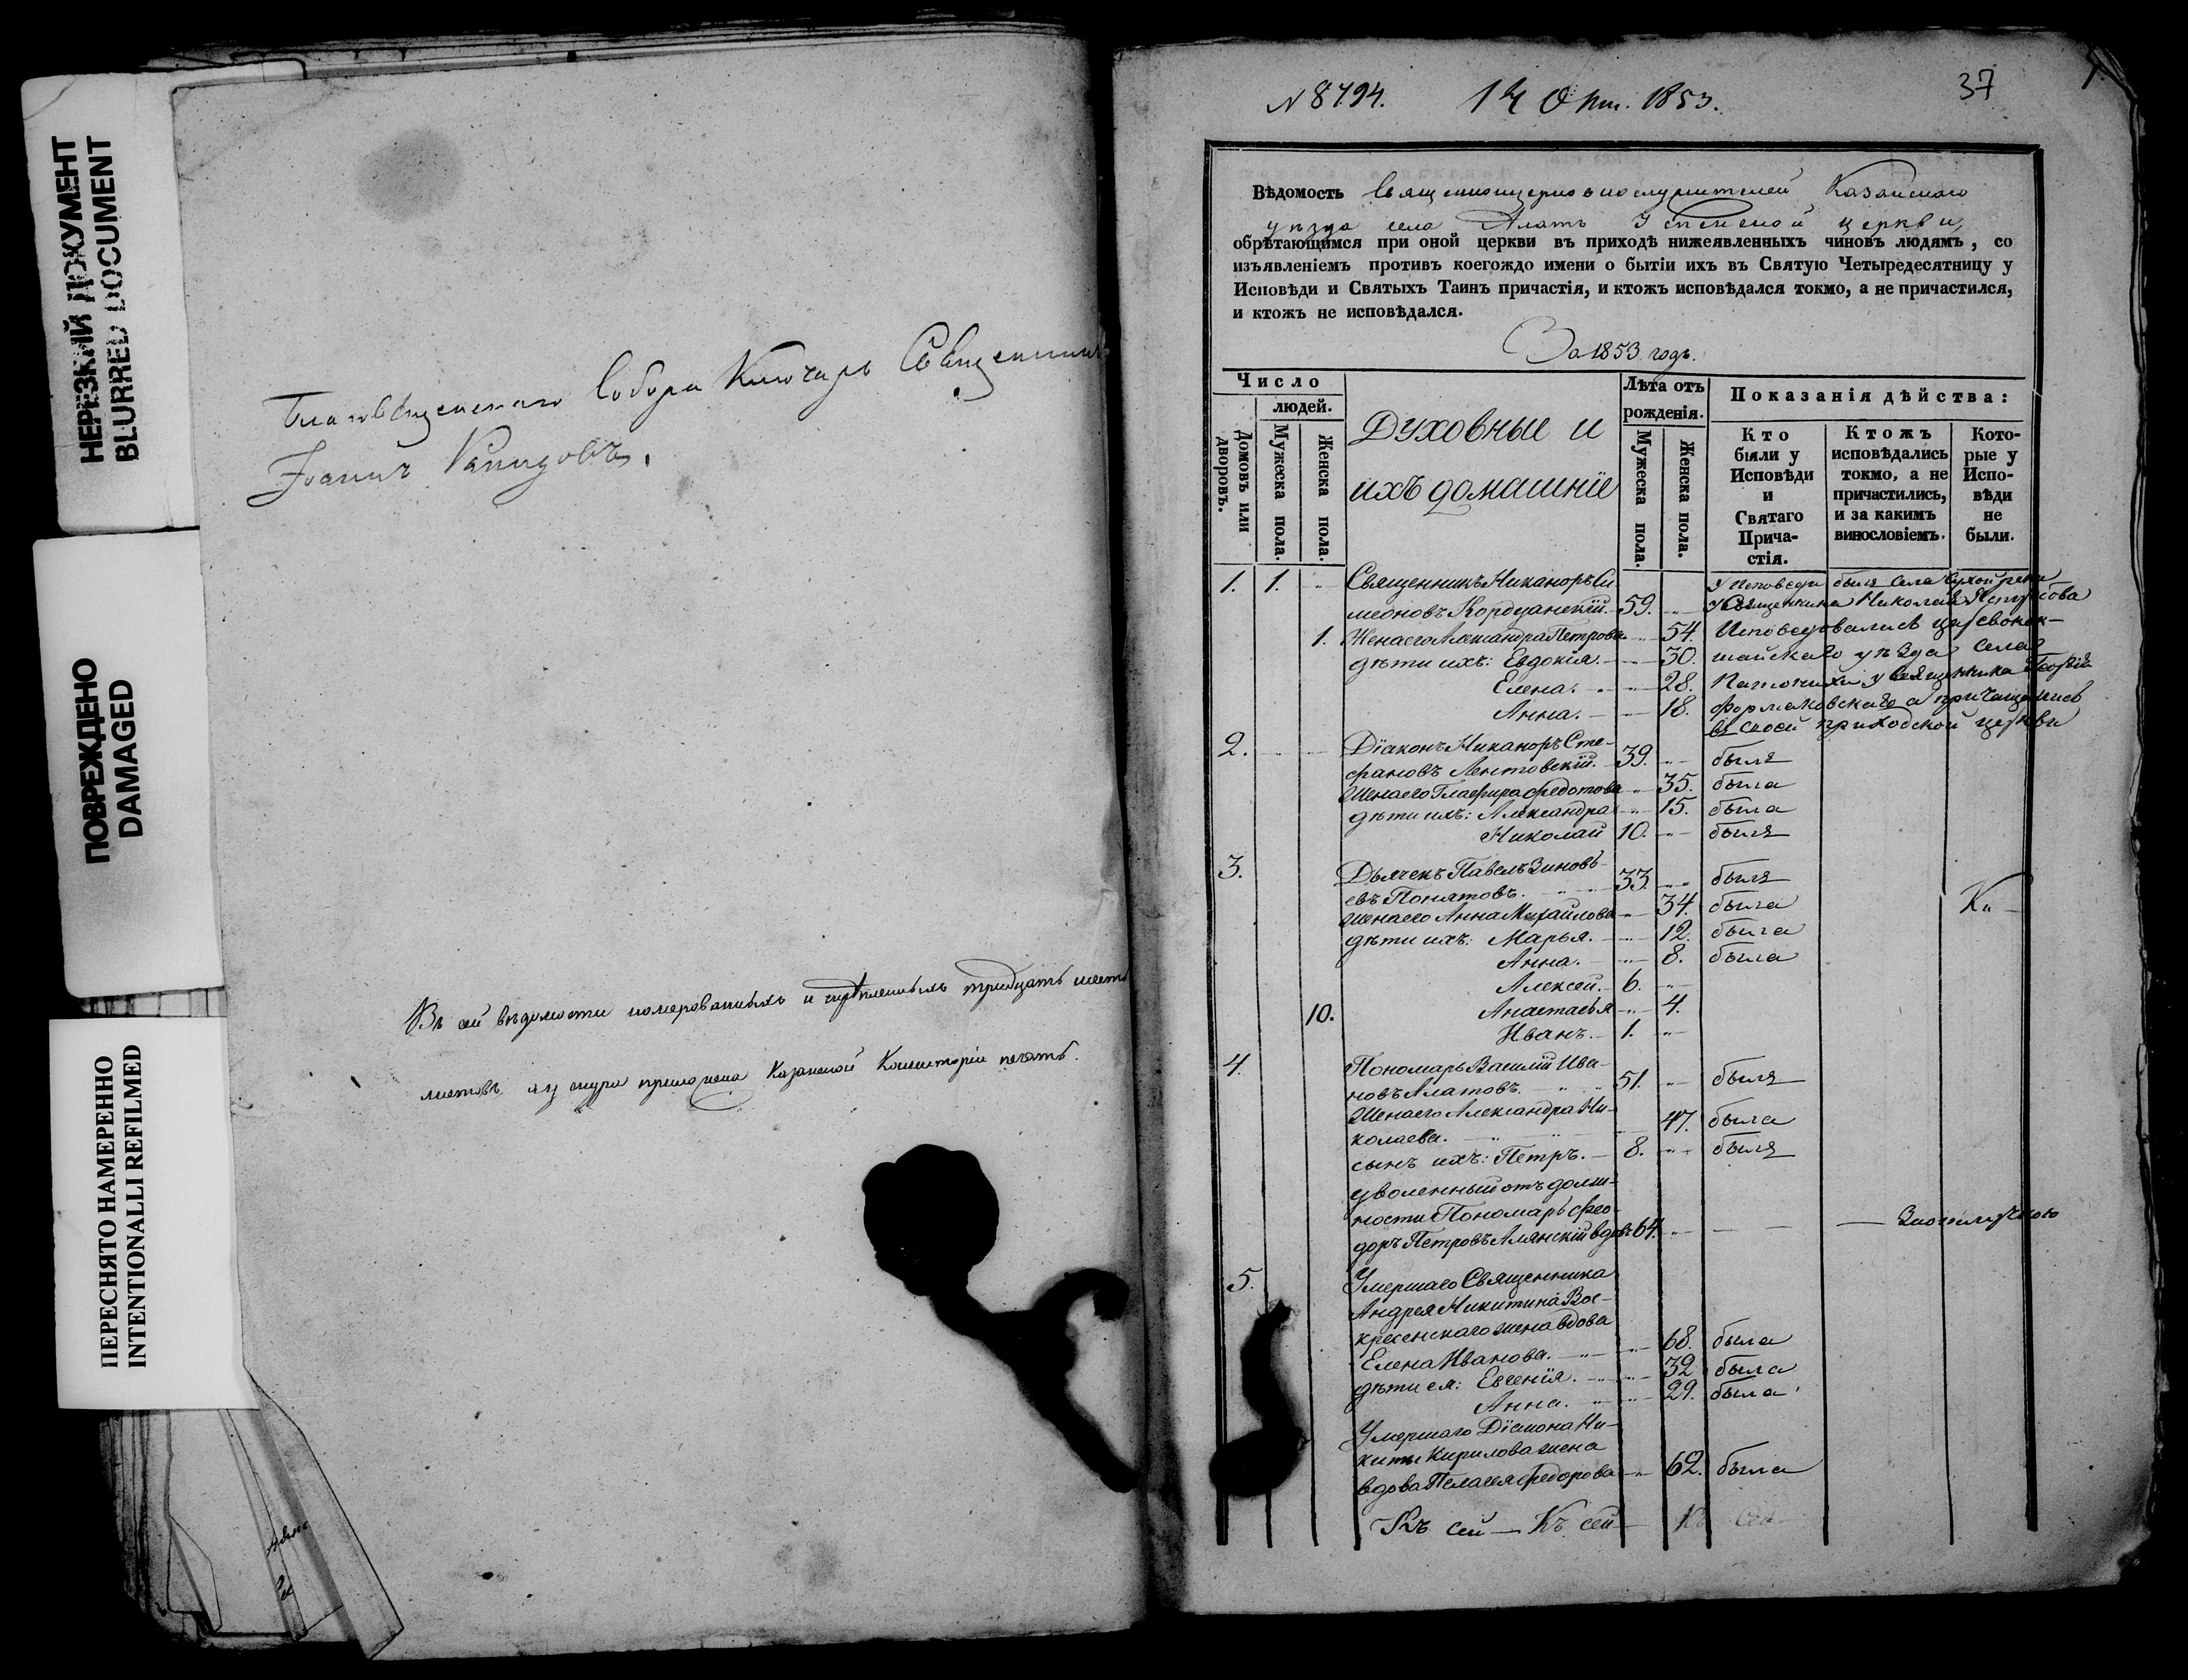 НЕРЕЗКИЙ ДОКУМЕНТ
BLURRED DOCUMENT
ПОВРЕЖДЕНО
DAMAGED
ПЕРЕСНЯТО НАМЕРЕННО
INTENTIONALLI REFILMED
Благовѣщенскаго Собора Ключарь Священникъ
Іоаннъ
Въ сей вѣдомости номерованныхъ и скрѣпленныхъ тридцать шесть
листовъ къ шнуру приложена Казанской Консисторіи печать.
N 8794. 14 Окт. 1853. 37
Вѣдомость Священноцерковнослужителей Казанскаго
уѣзда села Алатъ Успенской церкви,
обрѣтающимся при оной церкви въ приходѣ нижеявленныхъ чиновъ людямъ, со
изъявленіемъ противъ коегождо имени о бытіи ихъ въ Святую Четыредесятницу у
Исповѣди и Святыхъ Таинъ причастія, и ктожъ исповѣдался токмо, а не причастился,
и ктожъ не исповѣдался.
За 1853 годъ.
Число
людей.
Домовъ или дворовъ.
Мужеска пола.
Женска пола.
Духовные и
ихъ домашніе
Лѣта отъ
рожденія.
Мужеска пола.
Женска пола.
Показанія дѣйства:
Кто были у Исповѣди и Святаго Прича-стія.
Ктожъ исповѣдались токмо, а не причастились, и за какимъ винословіемъ.
Кото-рые у Испо-вѣди не были.
1. 1. Священникъ Никаноръ Си- у Исповѣди былъ села Сухой реки
меоновъ Кордуанскій. 59. у Священника Николая
1. Жена его Александра Петрова 54. Исповѣдовались Царевокок-
дѣти ихъ: Евдокія. 30. шайскаго уѣзда села
Елена. 28. у священника Георгія
Анна. 18. а причащались
въ своей приходской церкви
2. Діаконъ Никаноръ Сте-
фановъ Лентовскій. 39. былъ
Жена его Глафира Федотова 35. была
дѣти ихъ: Александра 15. была
Николай 10. былъ
3. Дьячекъ Павелъ Зиновь-
евъ Понятовъ. 33. былъ
Жена его Анна Михайлова 34. была
дѣти ихъ: Марья. 12. была
Анна. 8. была
Алексей. 6.
10. Анастасья 4.
Иванъ. 1.
4. Пономарь Василій Ива-
новъ Алатовъ. 51. былъ
Жена его Александра Ни-
колаева. 47. была
сынъ ихъ: Петръ. 8. былъ
уволенный отъ долж-
ности Пономарь Фео-
доръ Петровъ Алянскій вдовъ 64. За отлучкою
5. Умершаго Священника
Андрея Никитина Вос-
кресенскаго жена вдова
Елена Иванова. 68. была
дѣти ея: Евгенія. 32. была
Анна. 29. была
Умершаго Діакона Ни-
киты Кирилова жена
вдова Пелагея Федорова 62. была
Къ сей Къ сей Къ сей